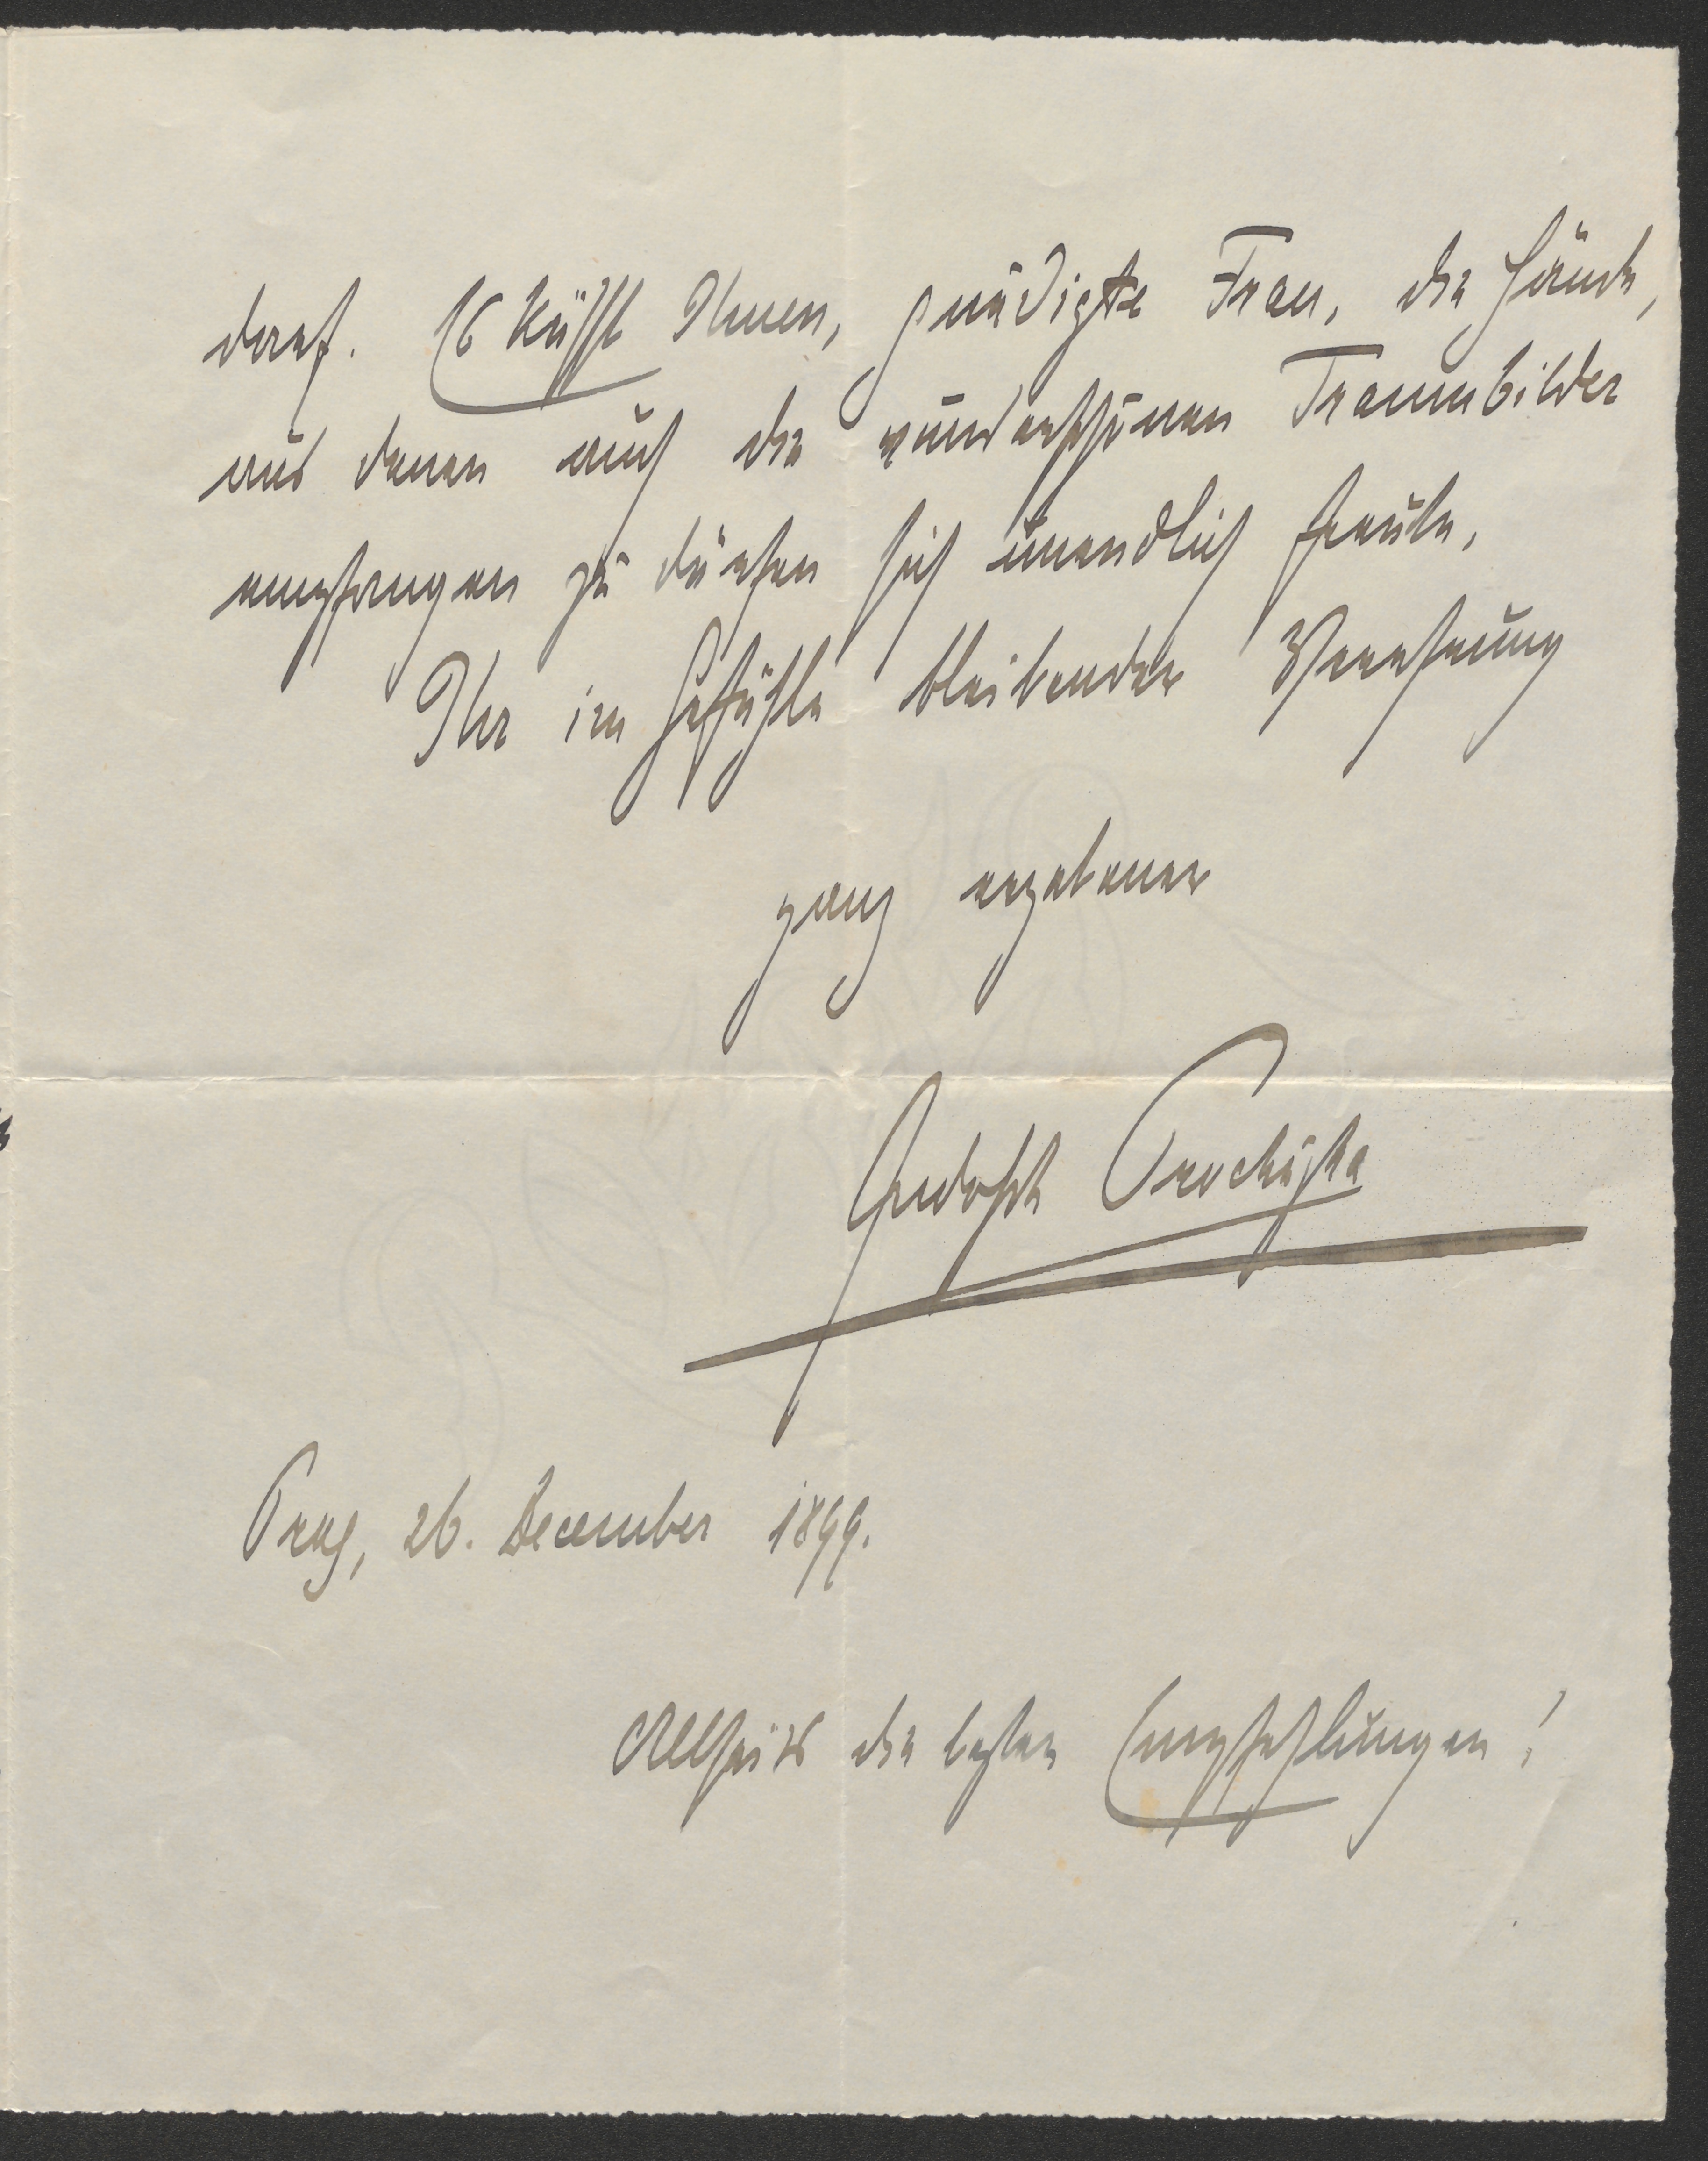 darf. Es küsst Ihnen, gnädigste Frau, die Hände,
aus denen auch die wunderschönen Traumbilder
empfangen zu dürfen sich unendlich freute,
Ihr im Gefühle bleibender Verehrung
ganz ergebener
Rudolph Prochàzka
Prag, 26. December 1899.
Allseits die besten Empfehlungen!